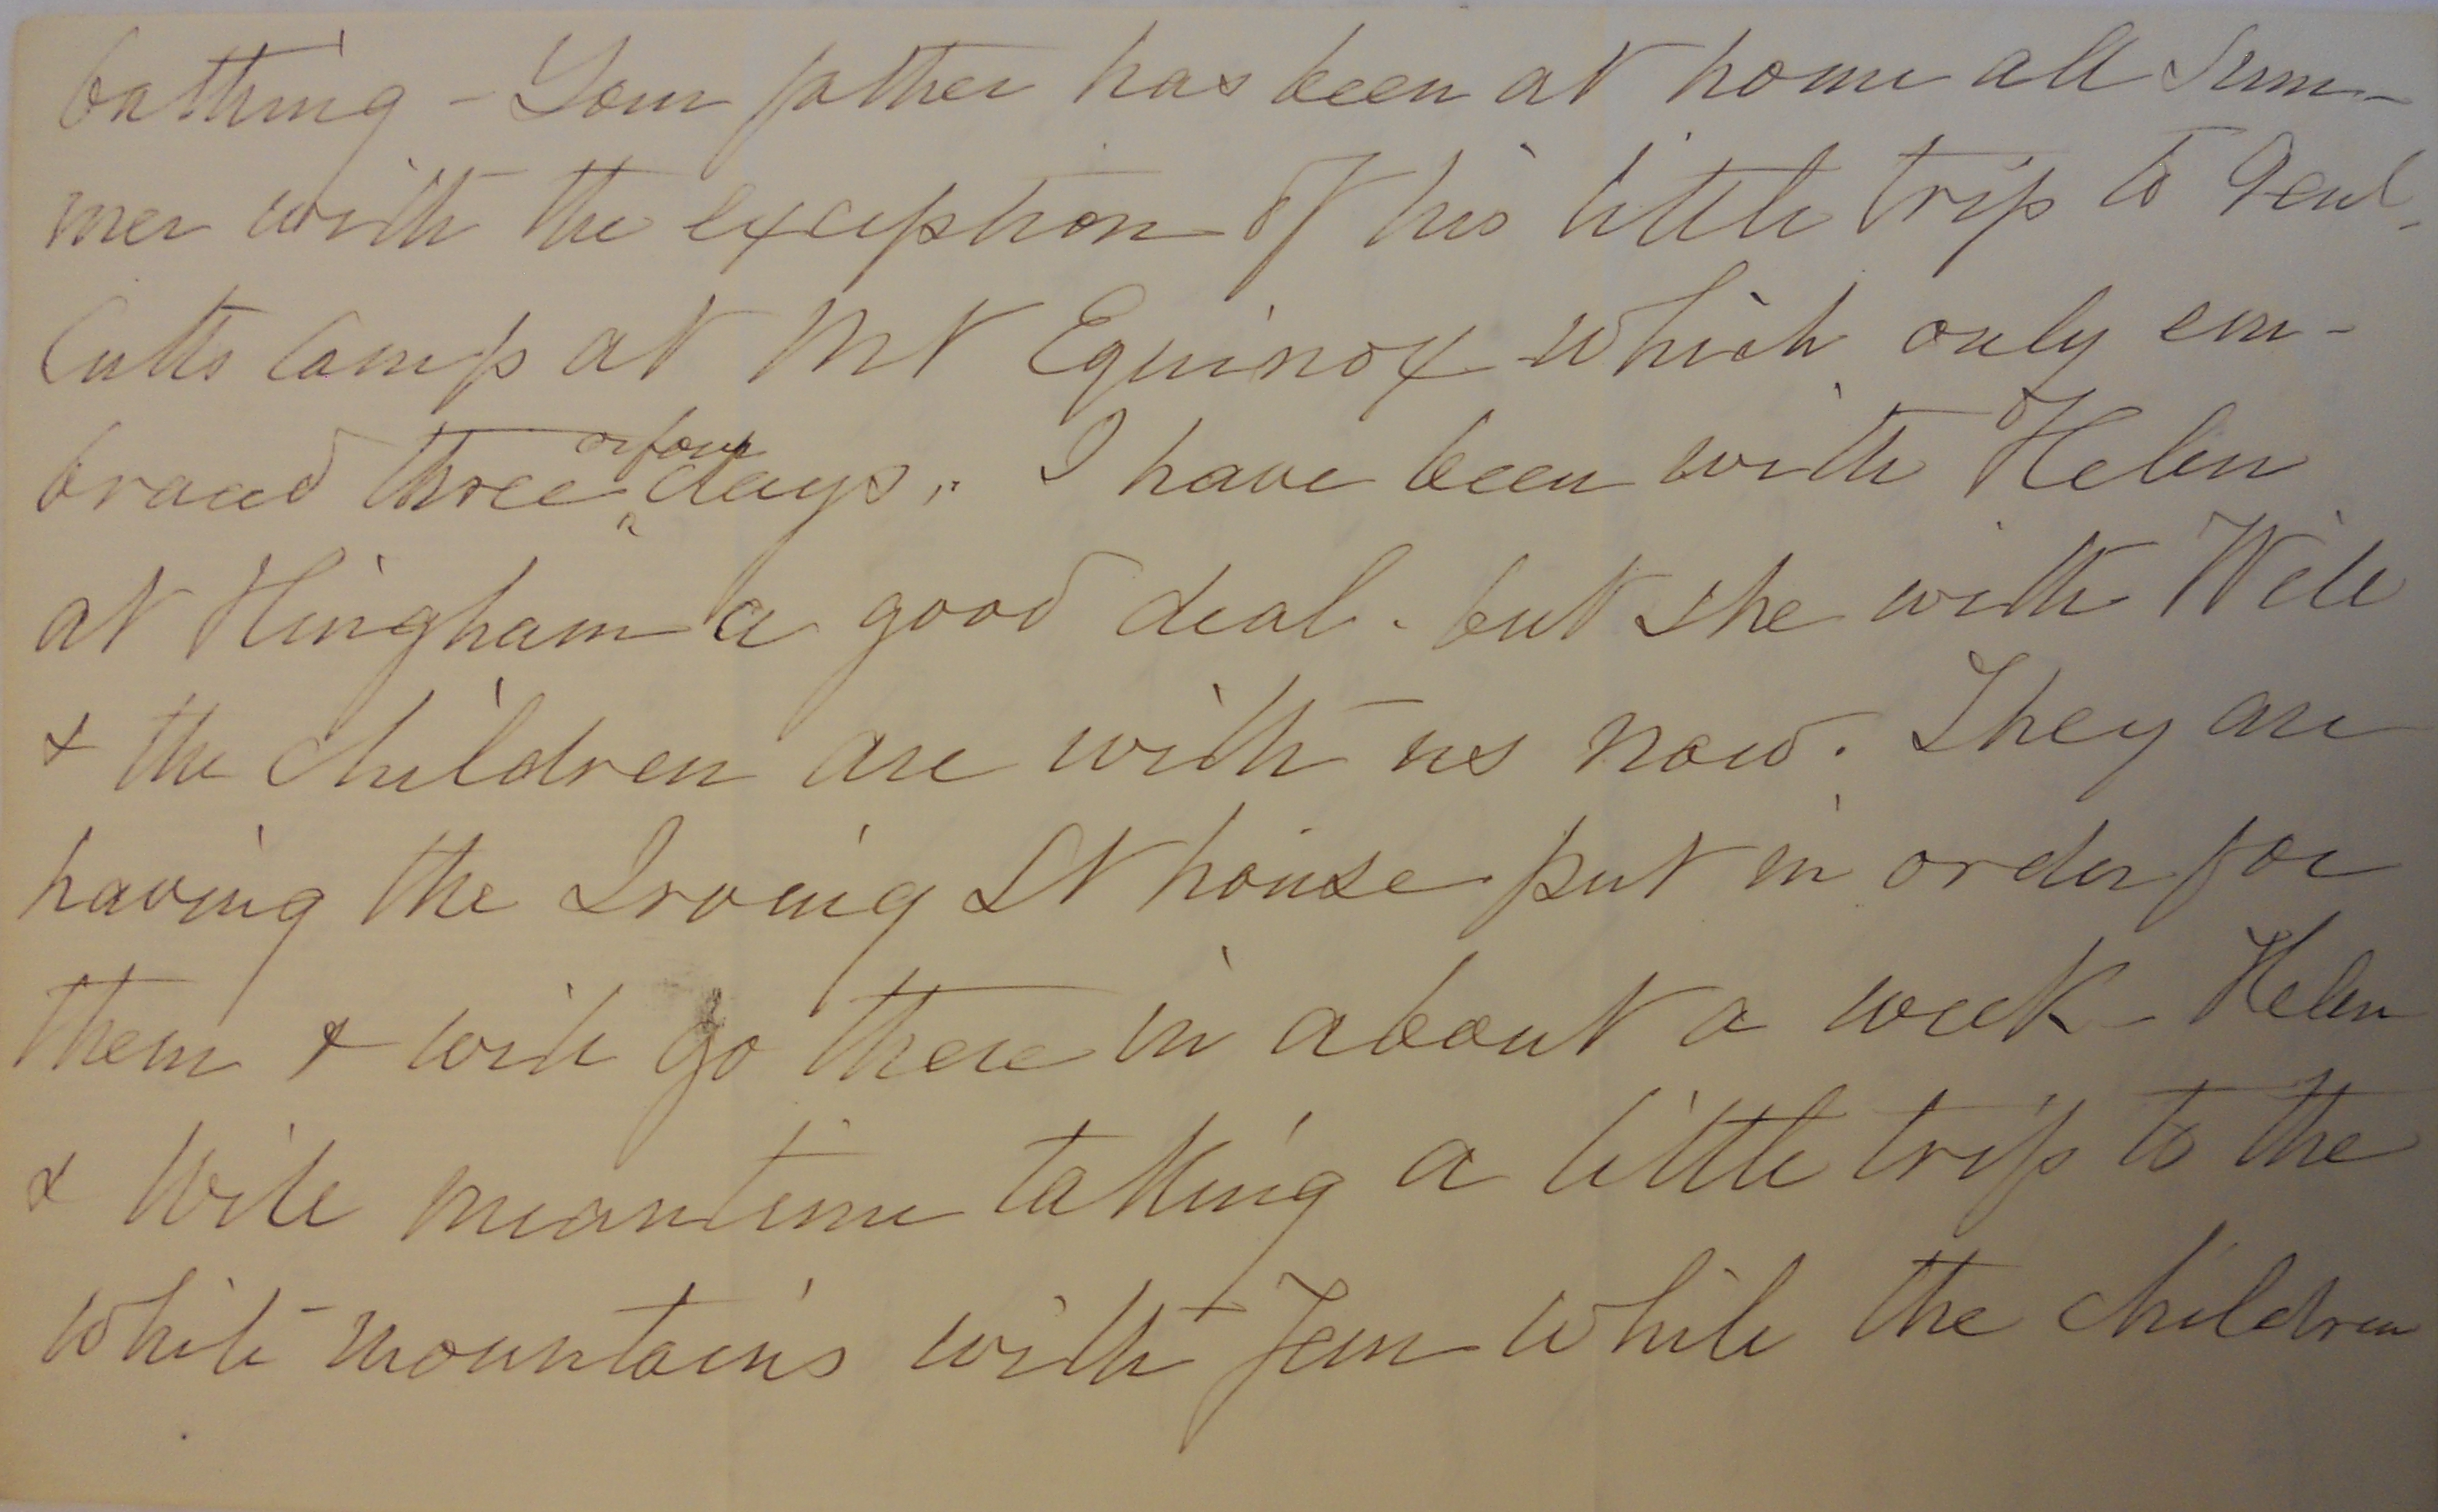 bathing - Your father has been at home all Sum-
mer with the exception of his little trip to Genl.
Cutts Camp at Mt Equinox which only em-
braced three or four days. I have been with Helen
at Hingham a good deal - but she with Will
& the children are with us now. They are
having the Irving St house put in order for
them & will go there in about a week - Helen
& Will meantime taking a little trip to the
White mountains with Jem while the children